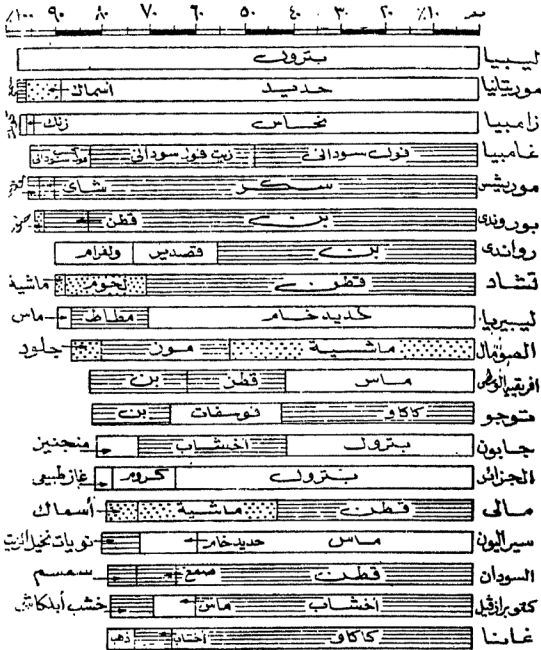 صفر ١٠٪ ٢٠ ٣٠ ٤٠ ٥٠ ٦٠ ٧٠ ٨٠ ٩٠ ١٠٠٪
ليبيا بترول
موريتانيا حديد أسماك
زامبيا نحاس زنك
غامبيا فول سودانى زيت فول سودانى
موريشس سكر شاى
بوروندى بن قطن
رواندى بن قصدير ولفرام
تشاد قطن لحوم ماشية
ليبيريا حديد خام مطاط ماس
الصومال ماشية موز جلود
افريقيا الوسطى ماس قطن بن
توجو كاكاو فوسفات بن
جابون بترول أخشاب منجنيز
الجزائر بترول كروم غاز طبيعى
مالى قطن ماشية أسماك
سيراليون ماس حديد خام نويات نخيل الزيت
السودان قطن صمغ سمسم
أخشاب ماس خشب أبلكاش
غانا كاكاو أخشاب ذهب